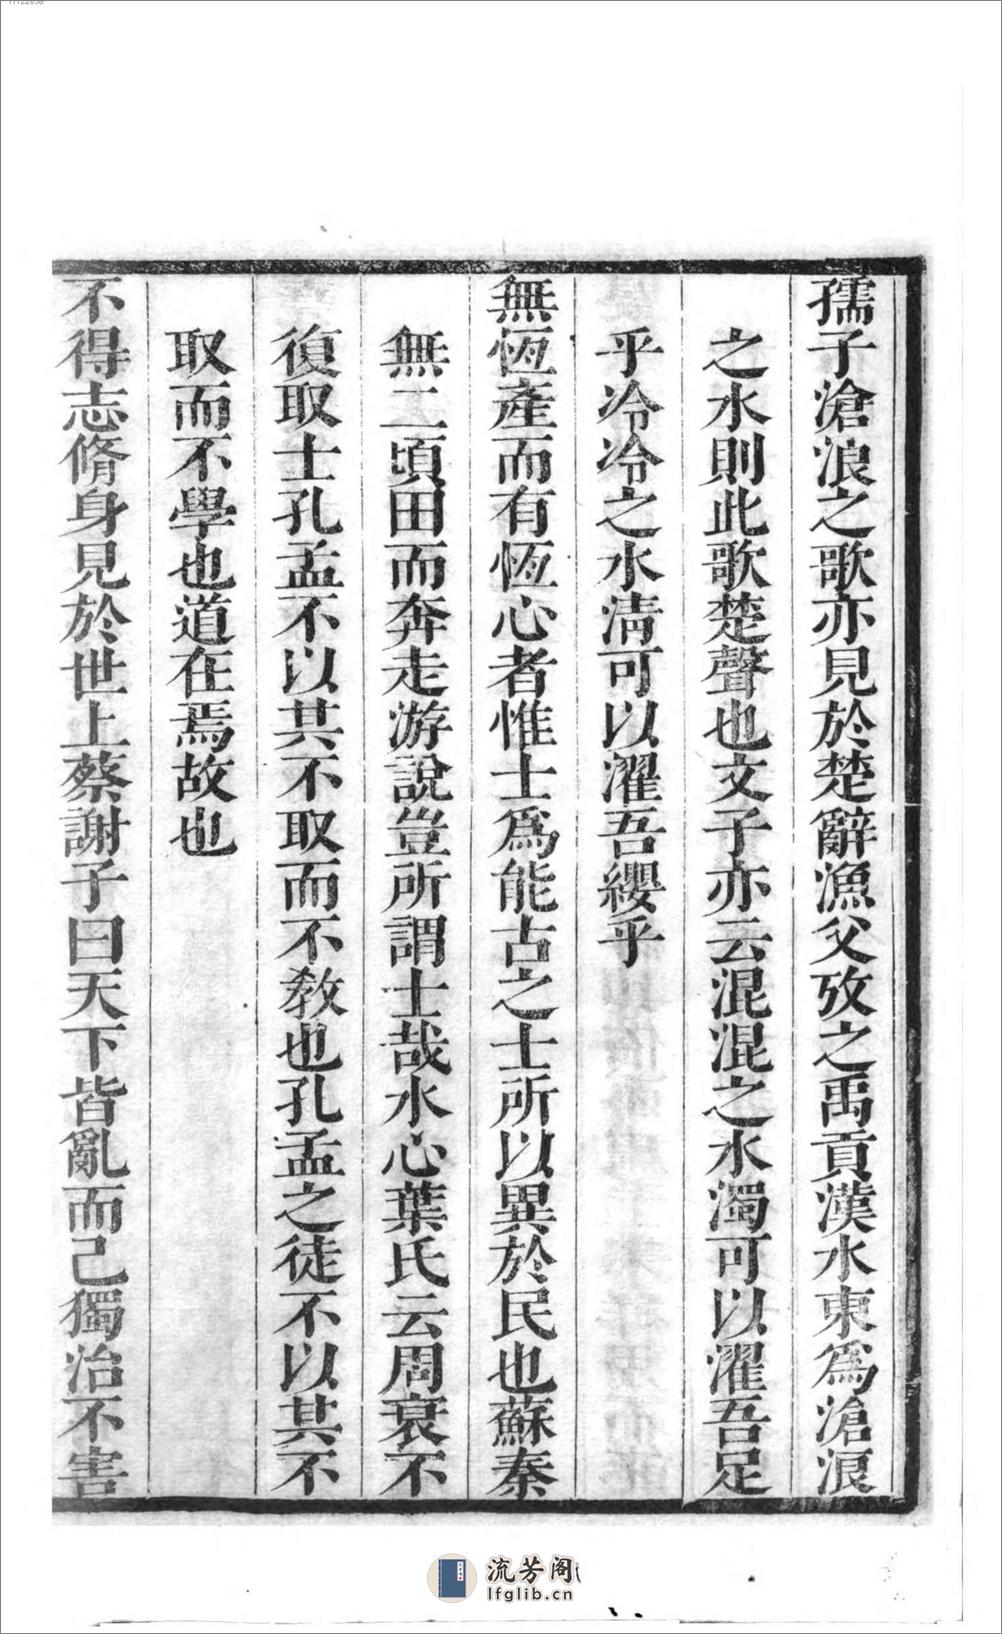 孺子滄浪之歌亦見於楚辭漁父攷之禹貢漢水東爲滄浪
之水則此歌楚聲也文子亦云混混之水濁可以濯吾足
乎冷冷之水清可以濯吾纓乎
無恆產而有恆心者惟士爲能古之士所以異於民也蘇秦
無二頃田而奔走游說豈所謂士哉水心葉氏云周衰不
復取士孔孟不以其不取而不敎也孔孟之徒不以其不
取而不學也道在焉故也
不得志脩身見於世上蔡謝子曰天下皆亂而己獨治不害
流芳阁
lfglib.cn